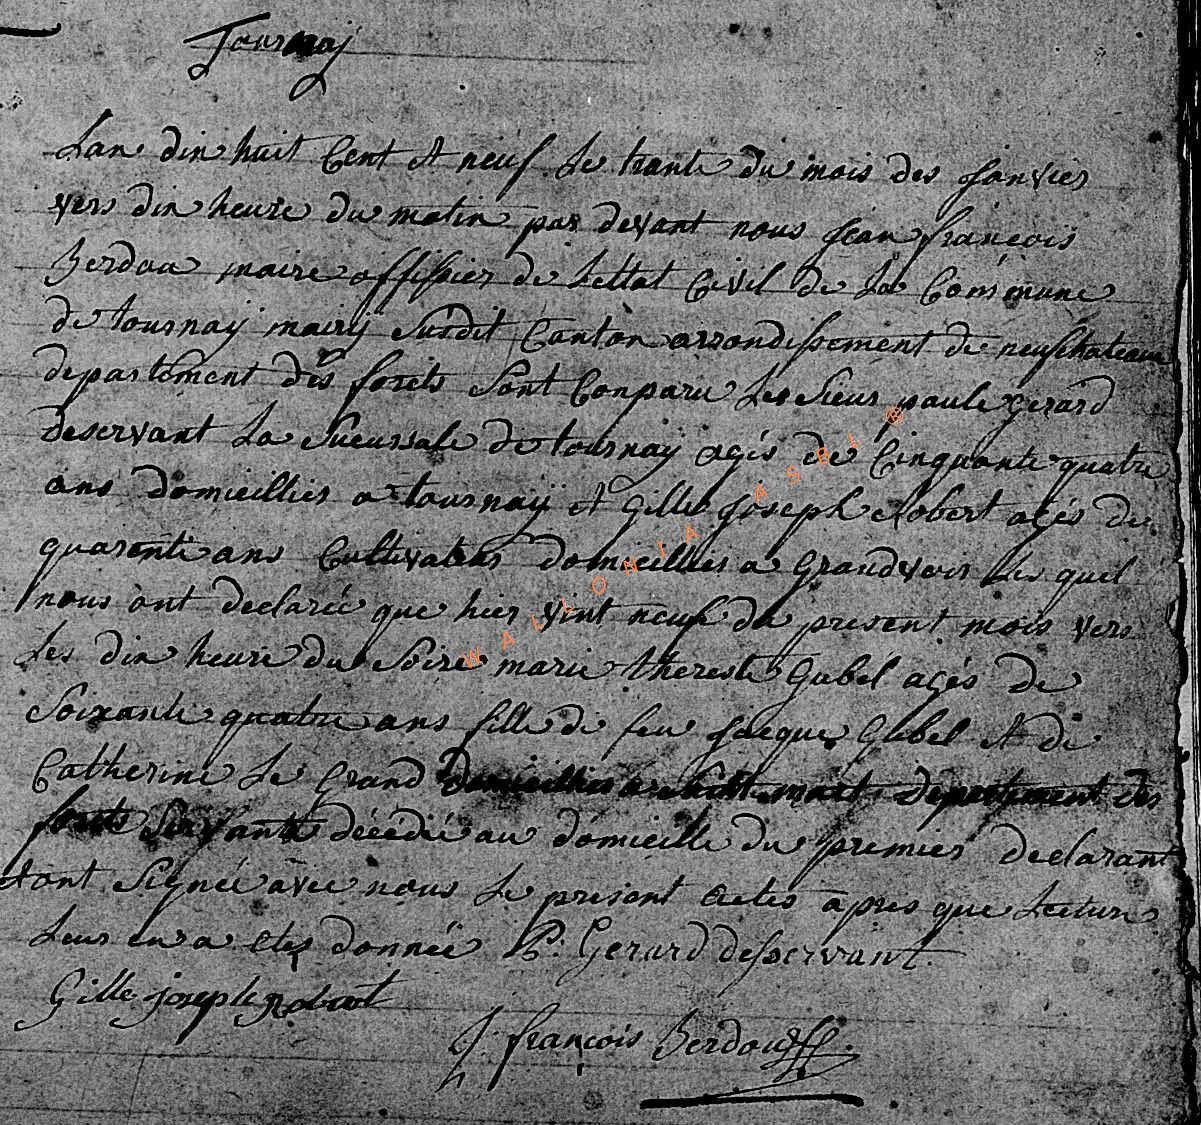 Tournay
Lan din huit Cent et neuf Le trante du mois des janvier
vers din heure du matin par devant nous jean françois
Berdoa maire offissier de Lettat Civil de La Commune
de tournay mairy Susdit Canton arrondissement de neufchateau
departement des forets Sont Conparu Les Sieur paule gerard
deservant La Sucursale de tournay agés de Cinquante quatre
ans domicillies a tournaÿ et gille joseph Robert agés de
quarente ans Cultivateur domicillies a grandvoir Les quel
nous ont declareé que hier vint neufe du present mois vers
Les din heure du Soire marie therese gubel agés de
Soixante quatre ans fille de feu jacque gubel et de
Catherine Le grand domicillies a mart departement des
forets Servante décédée au domicille du premier declarant
dont Signeé avec nous Le present actes apres que Lecture
Leur en a etes donneé P: Gerard desservant.
Gille joseph Robert
J. françois Berdoux
WALLONIA ASBL ©